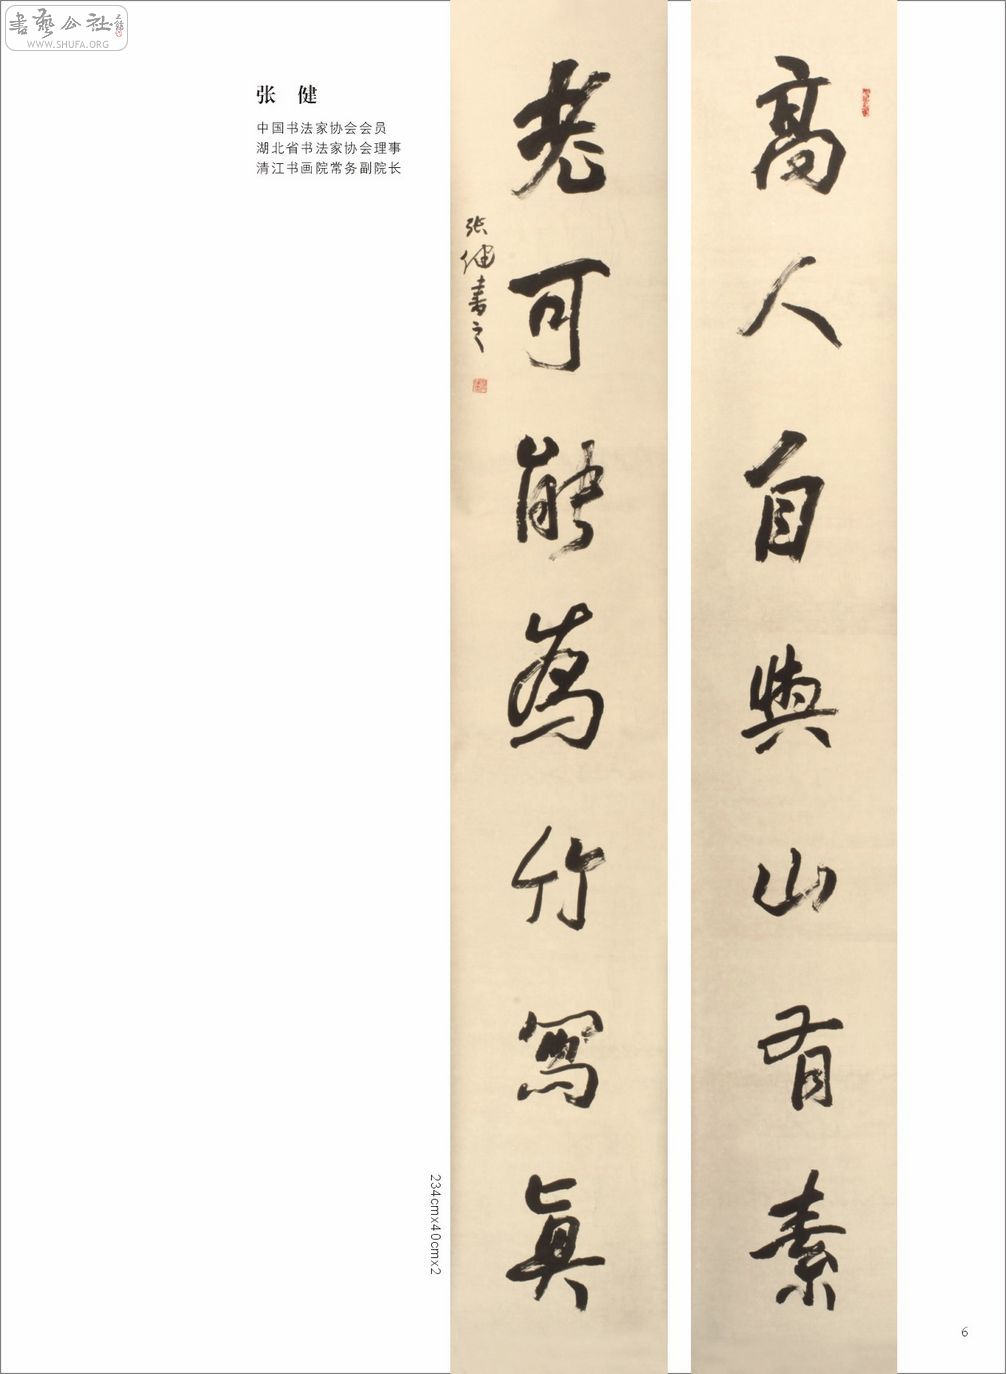 書藝公社
WWW.SHUFA.ORG
张 健
中国书法家协会会员
湖北省书法家协会理事
清江书画院常务副院长
高人自與山有素
老可能為竹寫真
张健書之
234cmx40cmx2
6